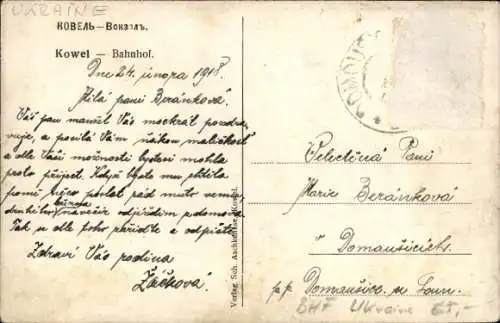 UKRAINE
КОВЕЛЬ — Вокзалъ.
Kowel — Bahnhof.
Dne 24. února 1918.
Milá paní Beránková.
Váš pan manžel Vás mockrát pozdra-
vuje, a posílá Vám ňákou maličkost
a dle Vaší možnosti byste mohla
pro přijet. Když byste mu chtěla
poslat rád muto vemu,
navečír odjíždím z domova.
Tak se dle toho přiďte a odpište.
Zdraví Vás rodina
Žáčková.
Verlag Sch. Kowel.
DOMOU
Velectěná Paní
Marie Beránková
v Domaušicích.
p.p. Domaušice u Loun.
BHF Ukraine